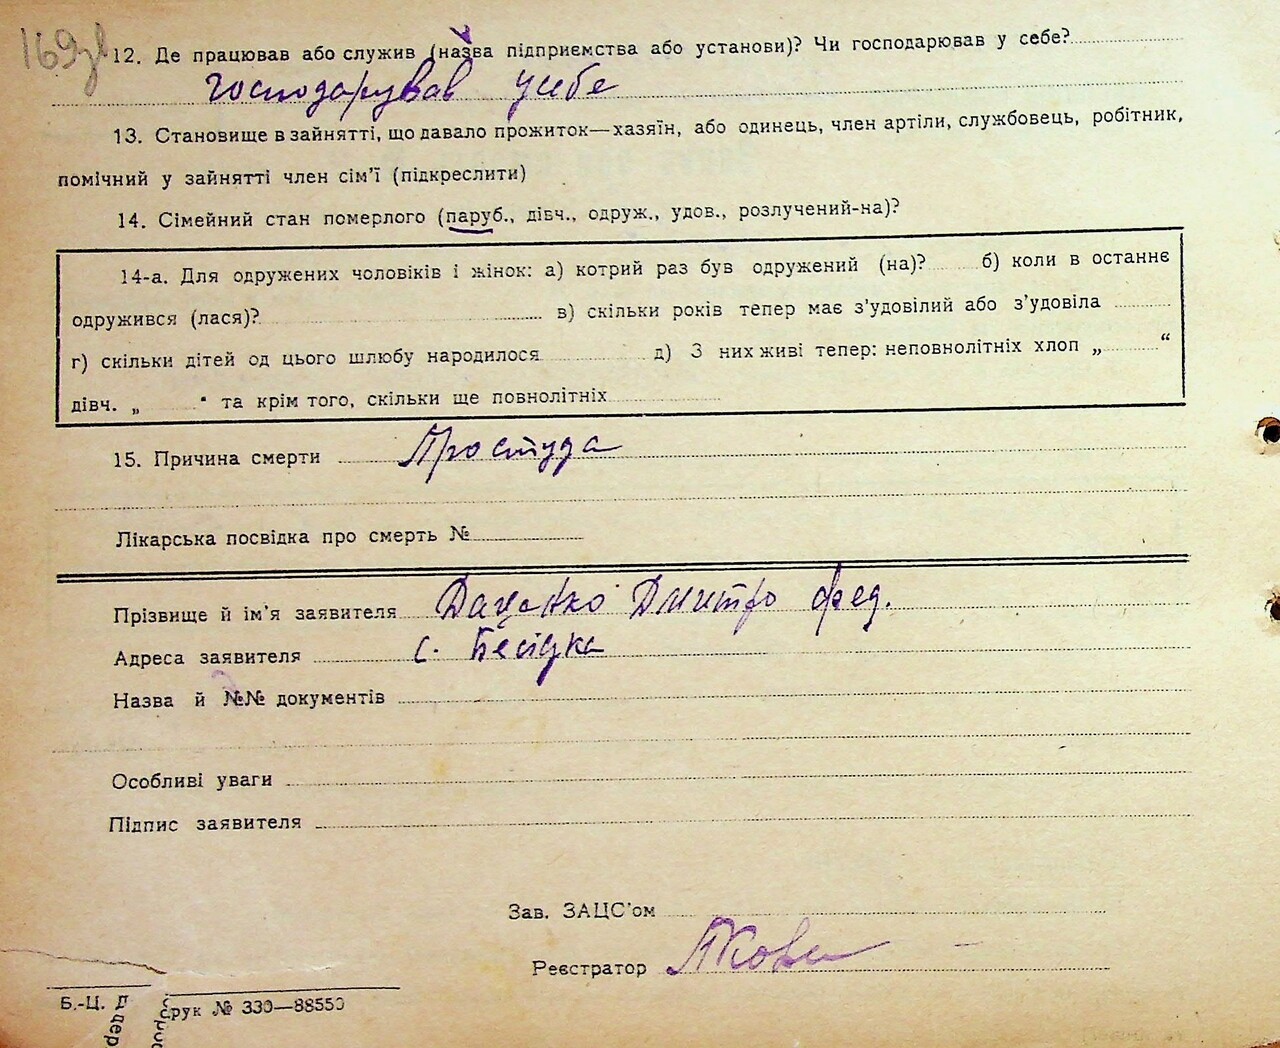 169зв
12. Де працював або служив (назва підприємства або установи)? Чи господарював у себе?
господарував у себе
13. Становище в зайнятті, що давало прожиток—хазяїн, або одинець, член артіли, службовець, робітник,
помічний у зайнятті член сім’ї (підкреслити)
14. Сімейний стан померлого (паруб., дівч., одруж., удов., розлучений-на)?
14-а. Для одружених чоловіків і жінок: а) котрий раз був одружений (на)? б) коли в останнє
одружився (лася)? в) скільки років тепер має з’удовілий або з’удовіла
г) скільки дітей од цього шлюбу народилося д) З них живі тепер: неповнолітніх хлоп „ “
дівч. „ “ та крім того, скільки ще повнолітніх
15. Причина смерти Простуда
Лікарська посвідка про смерть №
Прізвище й ім’я заявителя Даценко Дмитро Фед.
Адреса заявителя с. Бесідка
Назва й №№ документів
Особливі уваги
Підпис заявителя
Зав. ЗАЦС’ом
Реєстратор
Б.-Ц. Д рук № 330—88550